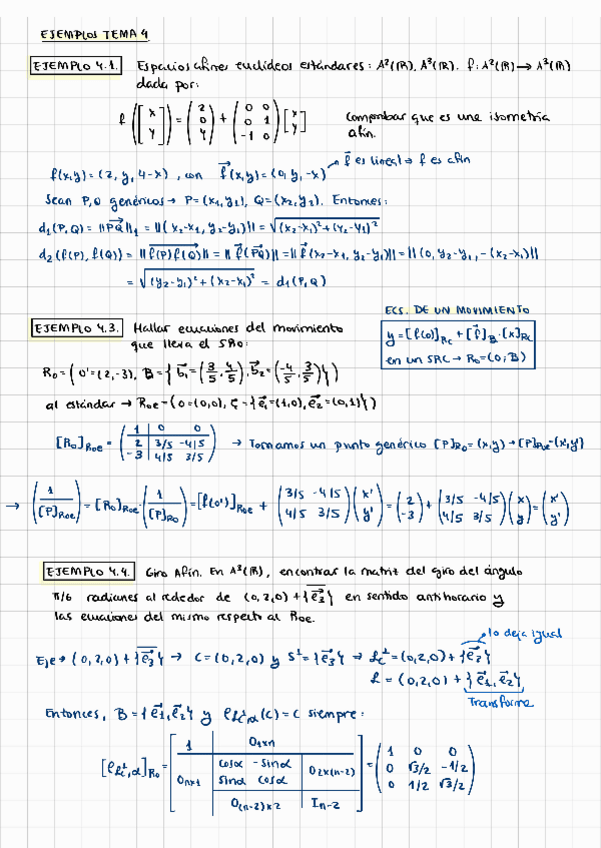 EJEMPLOS TEMA 4
EJEMPLO 4.1. Espacios afines euclídeos estándares: A²(ℝ), A³(ℝ). f: A²(ℝ) → A³(ℝ)
dada por:
f([x y]) = (2 0 4) + (0 0 / 0 1 / -1 0) [x y] Comprobar que es una isometría
afín.
f(x,y) = (2, y, 4-x), con f⃗(x,y) = (0, y, -x) → f⃗ es lineal ⇒ f es afín
Sean P,Q genéricos → P=(x₁,y₁), Q=(x₂,y₂). Entonces:
d₁(P,Q) = ||PQ⃗||₁ = ||(x₂-x₁, y₂-y₁)|| = √((x₂-x₁)²+(y₂-y₁)²)
d₂(f(P), f(Q)) = ||f(P)f(Q)⃗|| = ||f⃗(PQ⃗)|| = ||f⃗(x₂-x₁, y₂-y₁)|| = ||(0, y₂-y₁, -(x₂-x₁))||
= √((y₂-y₁)²+(x₂-x₁)²) = d₁(P,Q)
ECS. DE UN MOVIMIENTO
y = [f(o)]Rc + [f⃗]B · [x]Rc
en un SRC → R₀=(O; B)
EJEMPLO 4.3. Hallar ecuaciones del movimiento
que lleva el SRO:
R₀ = {O'=(2,-3), B = {b⃗₁=(3/5, 4/5), b⃗₂=(-4/5, 3/5)}}
al estándar → R₀e = {O=(0,0), C = {e⃗₁=(1,0), e⃗₂=(0,1)}}
[R₀]R₀e = (1 | 0 0 / 2 | 3/5 -4/5 / -3 | 4/5 3/5) → Tomamos un punto genérico [P]R₀=(x,y) → [P]R₀e=(x',y')
→ (1 / [P]R₀e) = [R₀]R₀e · (1 / [P]R₀) = [f(o')]R₀e + (3/5 -4/5 / 4/5 3/5)(x' y') = (2 -3) + (3/5 -4/5 / 4/5 3/5)(x y) = (x' y')
EJEMPLO 4.4. Giro Afín. En A³(ℝ), encontrar la matriz del giro del ángulo
π/6 radianes alrededor de (0,2,0)+{e⃗₃} en sentido antihorario y
las ecuaciones del mismo respecto al R₀e.
lo deja igual
Eje → (0,2,0)+{e⃗₃} → C=(0,2,0) y S⊥={e⃗₃} → Lc⊥=(0,2,0)+{e⃗₃}
L = (0,2,0)+{e⃗₁, e⃗₂}
Transforma
Entonces, B={e⃗₁,e⃗₂} y ρLc⊥,α(c)=c siempre:
[ρLc⊥,α]R₀ = [1 | 0₁ₓₙ / 0ₙₓ₁ | cosα -sinα / sinα cosα | 0₂ₓ₍ₙ₋₂₎ / 0₍ₙ₋₂₎ₓ₂ | Iₙ₋₂] = (1 0 0 / 0 √3/2 -1/2 / 0 1/2 √3/2)